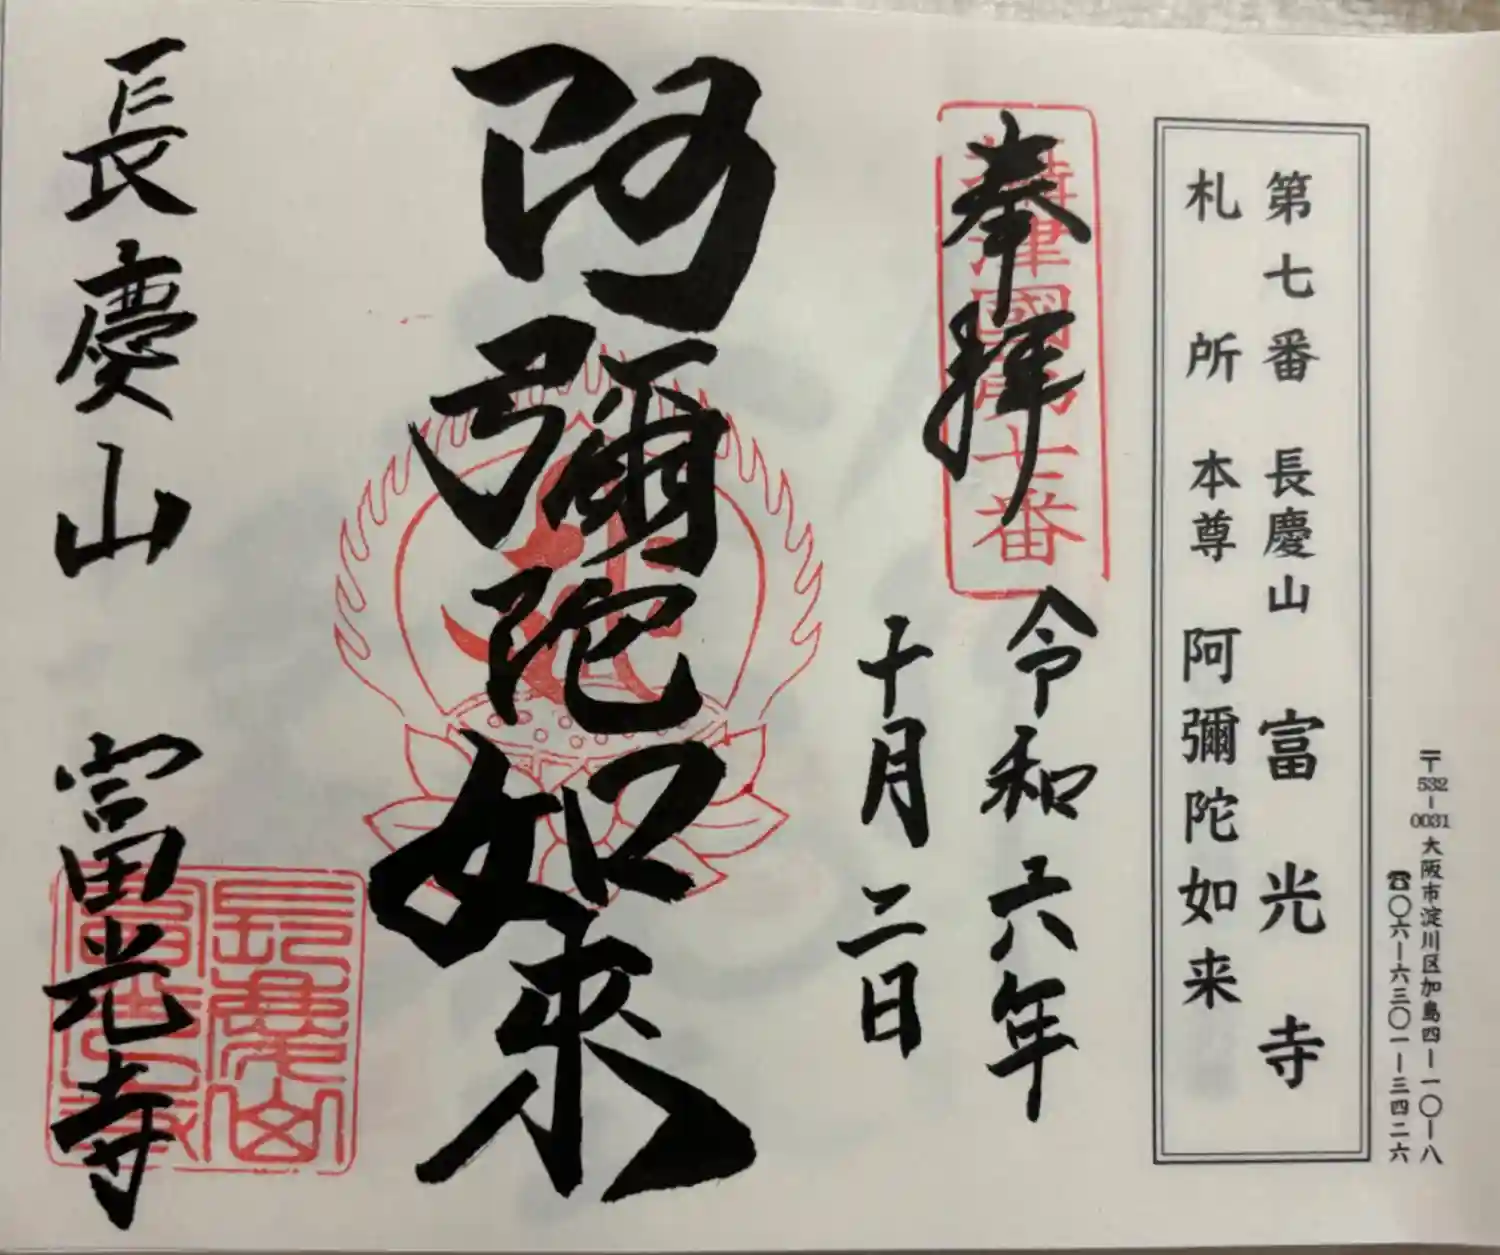 〒532-0031 大阪市淀川区加島四-一〇-八
☎〇六-六三〇一-三四二六
第七番 長慶山 富光寺
札所 本尊 阿彌陀如来
奉拝
攝津國第七番
令和六年
十月二日
阿彌陀如來
長慶山 富光寺
長慶山
富光寺